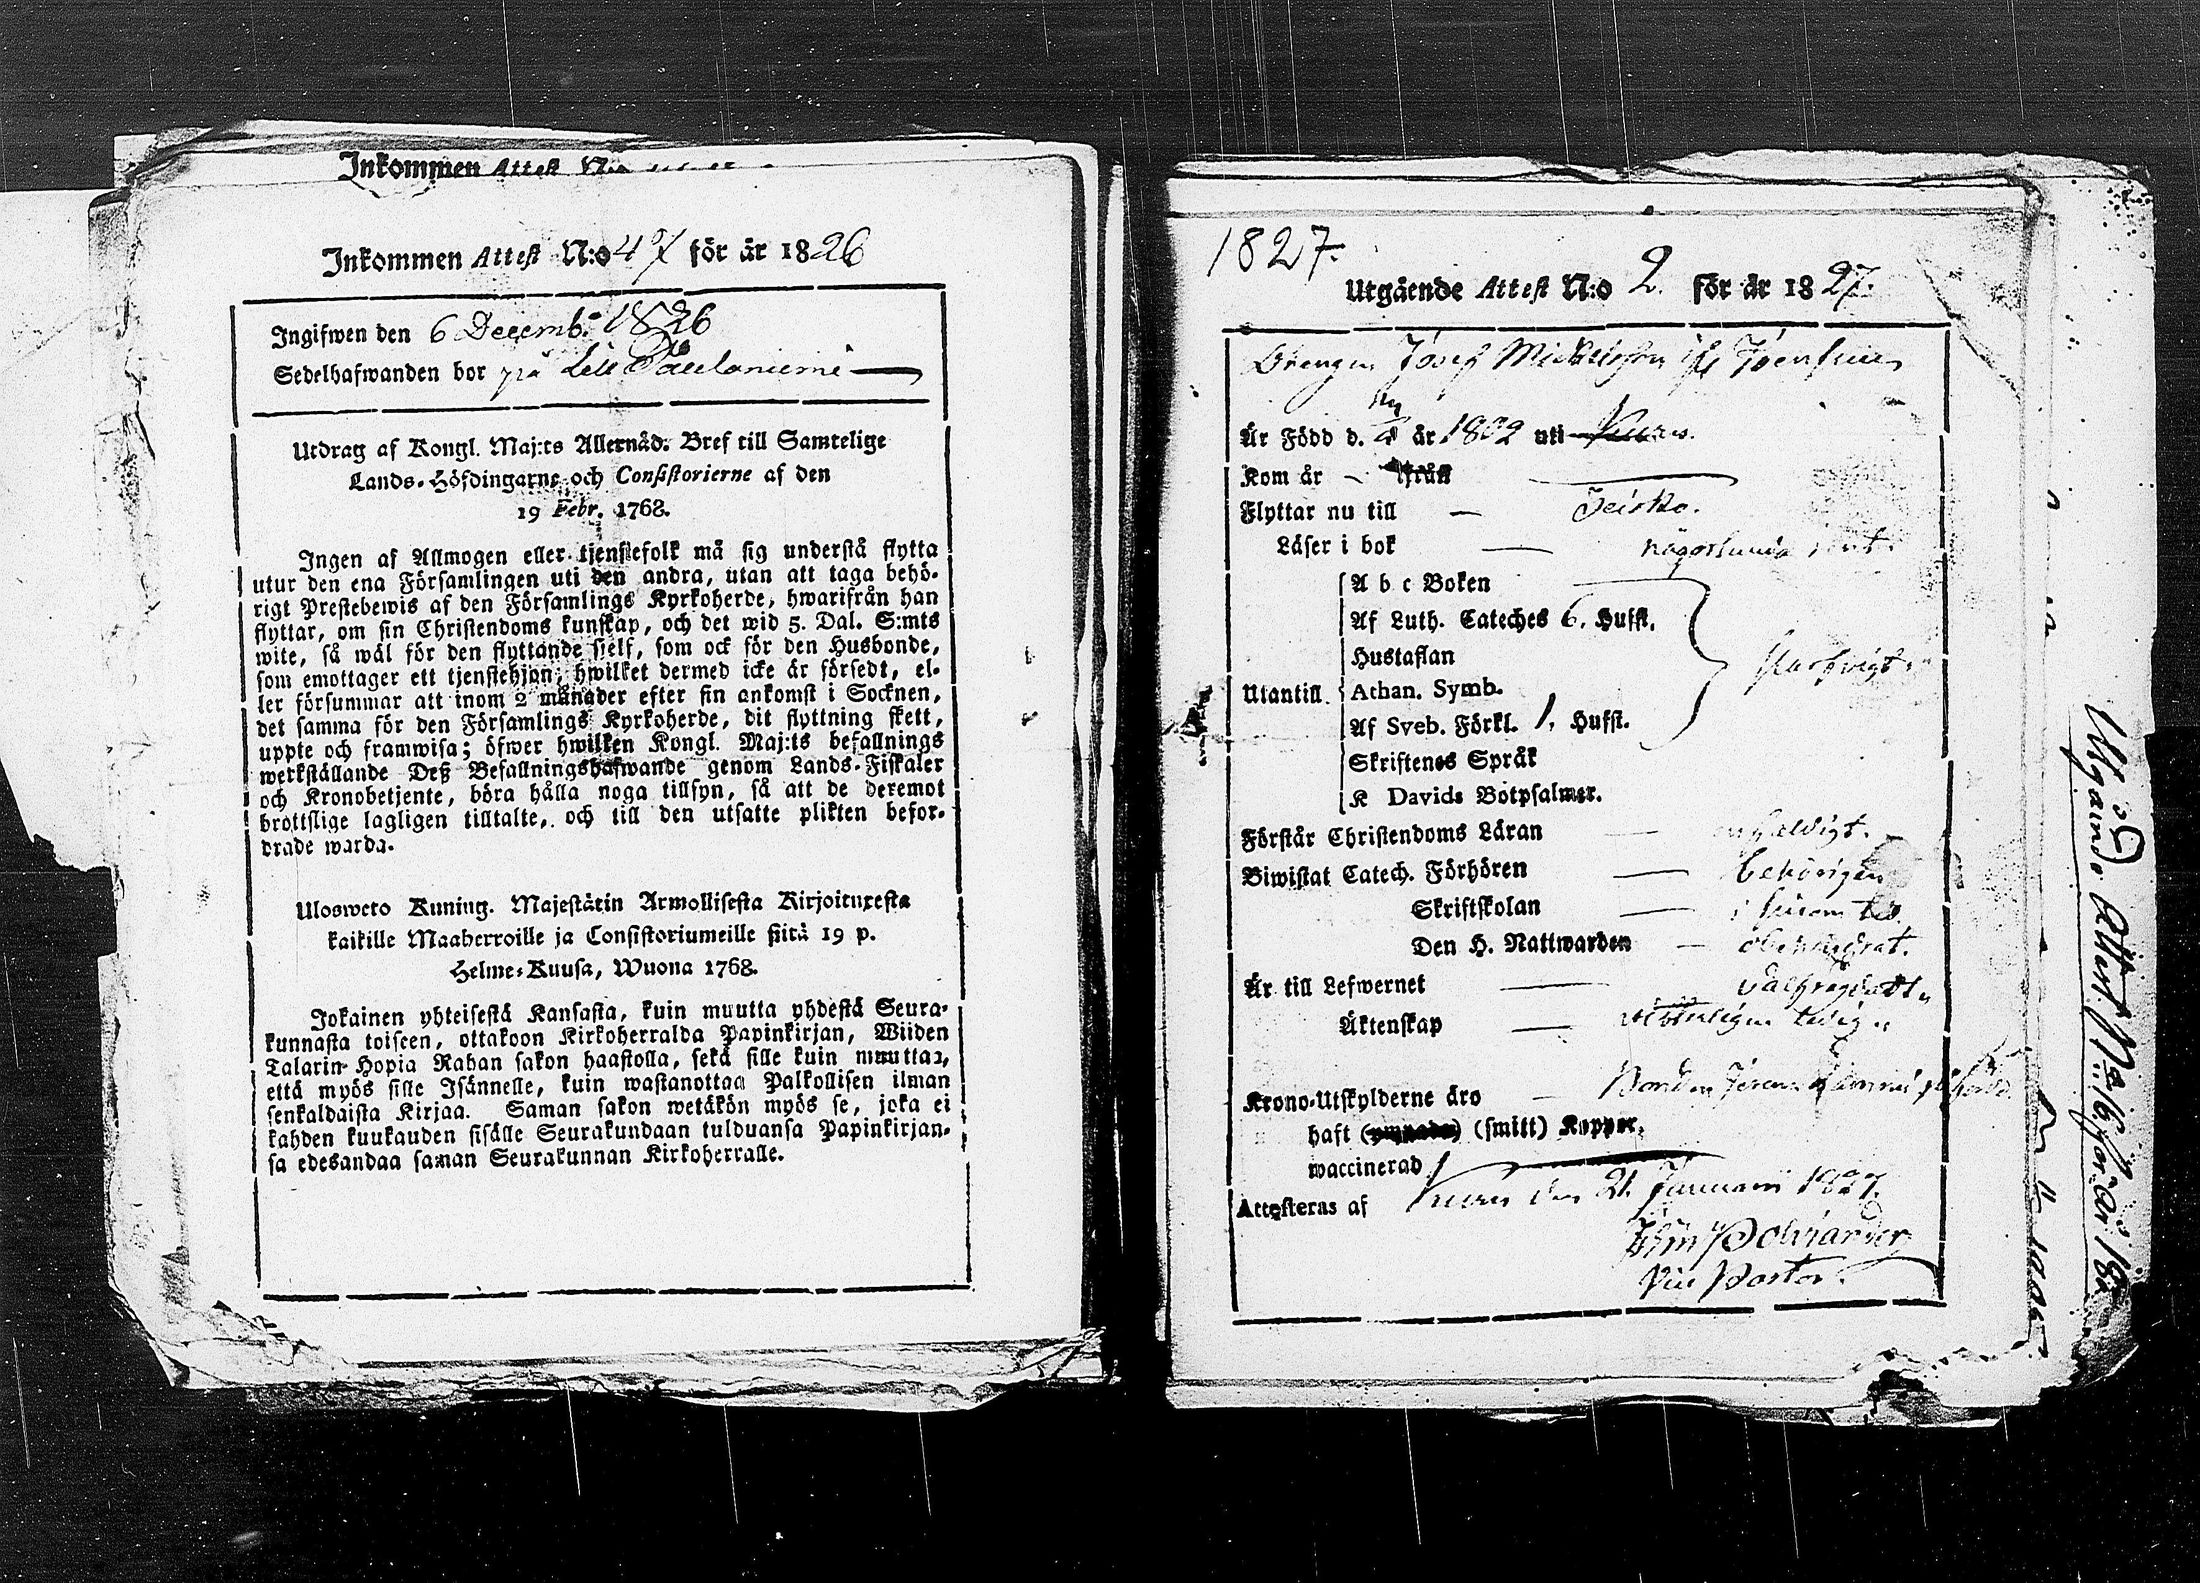 Inkommen Attest N:o
Inkommen Attest N:o 47 för år 1826
Ingifwen den 6 Decemb. 1826
Sedelhafwanden bor på Lill Paulaniemi
Utdrag af Kongl. Maj:ts Allernåd. Bref till Samtelige
Lands-Höfdingarne och Consistorierne af den
19 Febr. 1768.
Ingen af Allmogen eller tjenstefolk må sig understå flytta
utur den ena Församlingen uti den andra, utan att taga behö-
rigt Prestebewis af den Församlings Kyrkoherde, hwarifrån han
flyttar, om sin Christendoms kunskap, och det wid 5. Dal. S:mts
wite, så wäl för den flyttande sielf, som ock för den Husbonde,
som emottager ett tjenstehjon, hwilket dermed icke är försedt, el-
ler försummar att inom 2 månader efter sin ankomst i Socknen,
det samma för den Församlings Kyrkoherde, dit flyttning skett,
uppte och framwisa; öfwer hwilken Kongl. Maj:ts befallnings
werkställande Deß Befallningshafwande genom Lands-Fiskaler
och Kronobetjente, böra hålla noga tillsyn, så att de deremot
brottslige lagligen tilltalte, och till den utsatte plikten befor-
drade warda.
Ulosweto Kuning. Majestätin Armollisesta Kirjoituxesta
kaikille Maaherroille ja Consistoriumeille siitä 19 p.
Helme-Kuusa, Wuona 1768.
Jokainen yhteisestä Kansasta, kuin muutta yhdestä Seura-
kunnasta toiseen, ottakoon Kirkoherralda Papinkirjan, Wiiden
Talarin Hopia Rahan sakon haastolla, sekä sille kuin muuttaa,
että myös sille Isännelle, kuin wastanottaa Palkollisen ilman
senkaldaista Kirjaa. Saman sakon wetäkön myös se, joka ei
kahden kuukauden sisälle Seurakundaan tulduansa Papinkirjan-
sa edesandaa saman Seurakunnan Kirkoherralle.
1827.
Utgående Attest N:o 2. för år 1827.
Drengen Josef Michelsson ifr Joensuu
Är Född d. år 1802 uti
Kom år – ifrån
Flyttar nu till – Jeisko.
Läser i bok någorlunda rent.
A b c Boken
Af Luth. Cateches 6. Hufst.
Hustaflan
Utantill Athan. Symb.
Af Sveb. Förkl. 1. Hufst.
Skriftenes Språk
K Davids Botpsalmer.
Förstår Christendoms Läran
Biwistat Catech. Förhören behörigen
Skriftskolan
Den H. Nattwarden obehindrat.
Är till Lefwernet välfrägdadt
Äktenskap ledig
Krono-Utskylderne äro
haft (smitt) Koppor.
waccinerad
Attesteras af den 21 Januarii 1827.
Polviander
Vice Pastor.
Utgående Attest N:o 16 för år 182